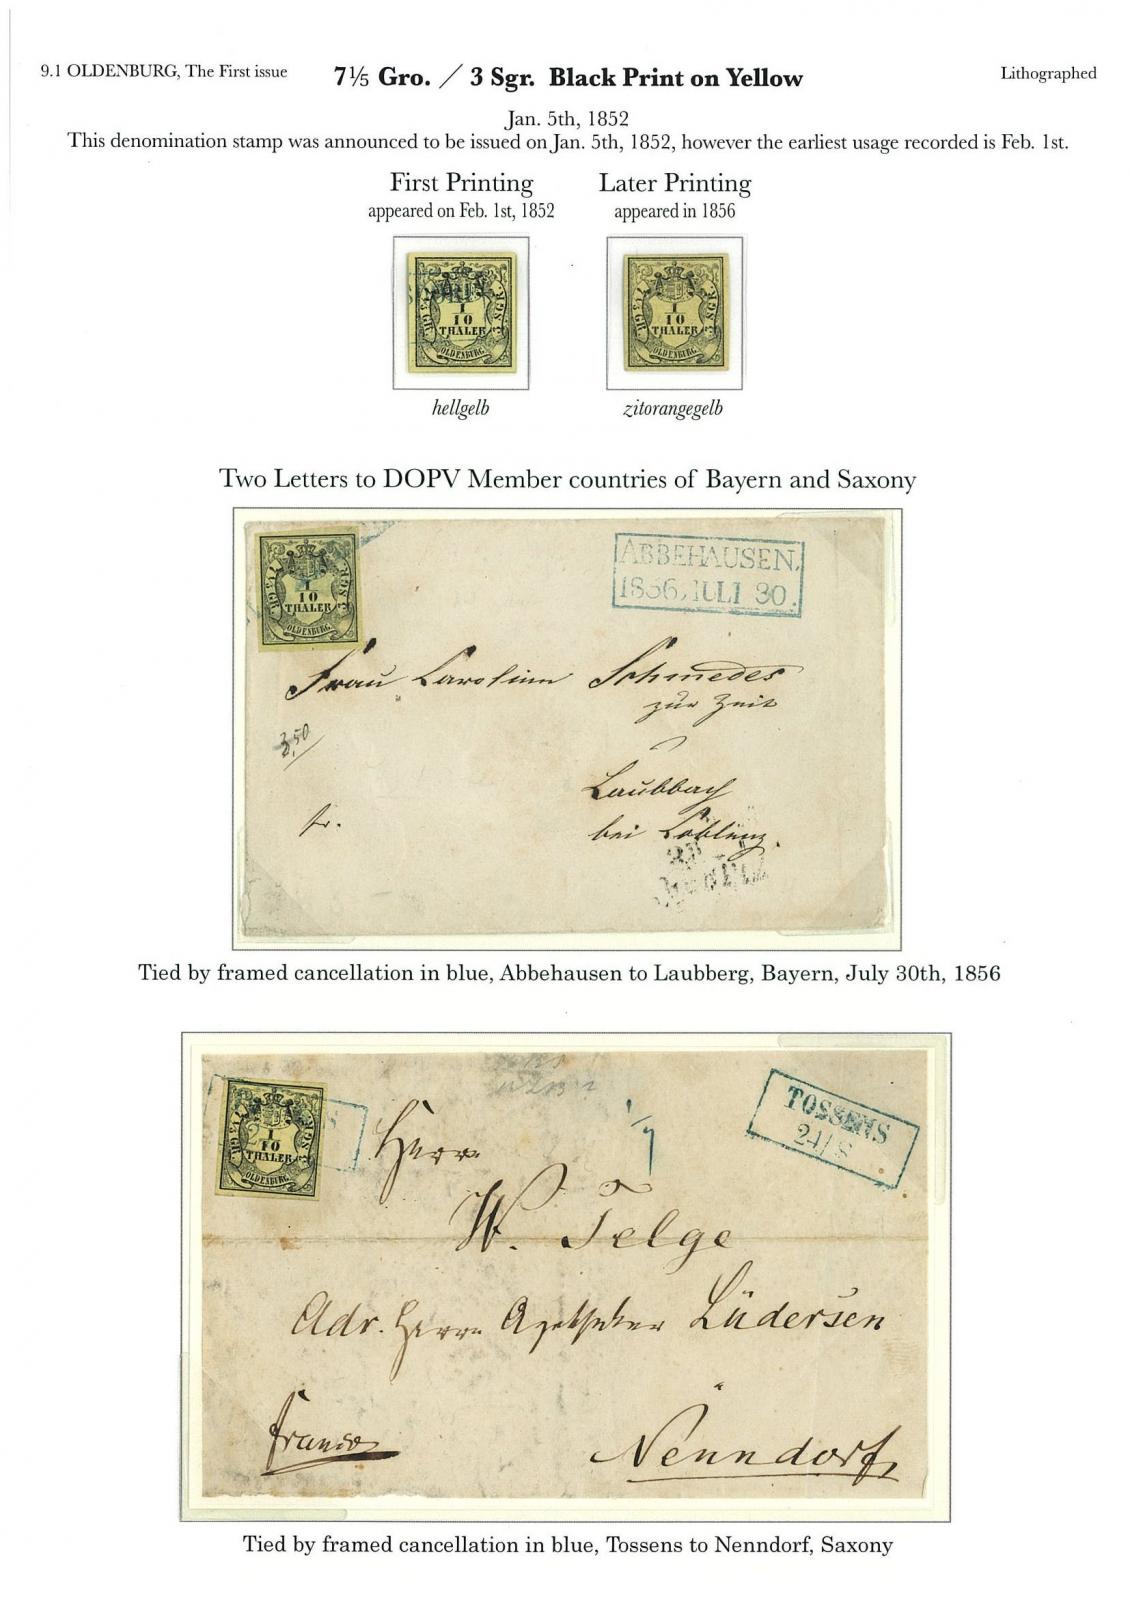 9.1 OLDENBURG, The First issue
7⅕ Gro. / 3 Sgr. Black Print on Yellow
Lithographed
Jan. 5th, 1852
This denomination stamp was announced to be issued on Jan. 5th, 1852, however the earliest usage recorded is Feb. 1st.
First Printing
appeared on Feb. 1st, 1852
Later Printing
appeared in 1856
1
10
THALER
3 SGR.
OLDENBURG.
1
10
THALER
3 SGR.
OLDENBURG.
hellgelb
zitorangegelb
Two Letters to DOPV Member countries of Bayern and Saxony
1
10
THALER
3 SGR.
OLDENBURG.
ABBEHAUSEN.
1856, JULI 30.
Frau Carolinn Schmedes
zur Zeit
Laubbach
bei Coblenz.
3,50
fr.
Tied by framed cancellation in blue, Abbehausen to Laubberg, Bayern, July 30th, 1856
1
10
THALER
3 SGR.
OLDENBURG.
TOSSENS
24/8
Herrn
W. Telge
Adr. Herrn Apotheker Lüdersen
franco
Nenndorf,
Tied by framed cancellation in blue, Tossens to Nenndorf, Saxony